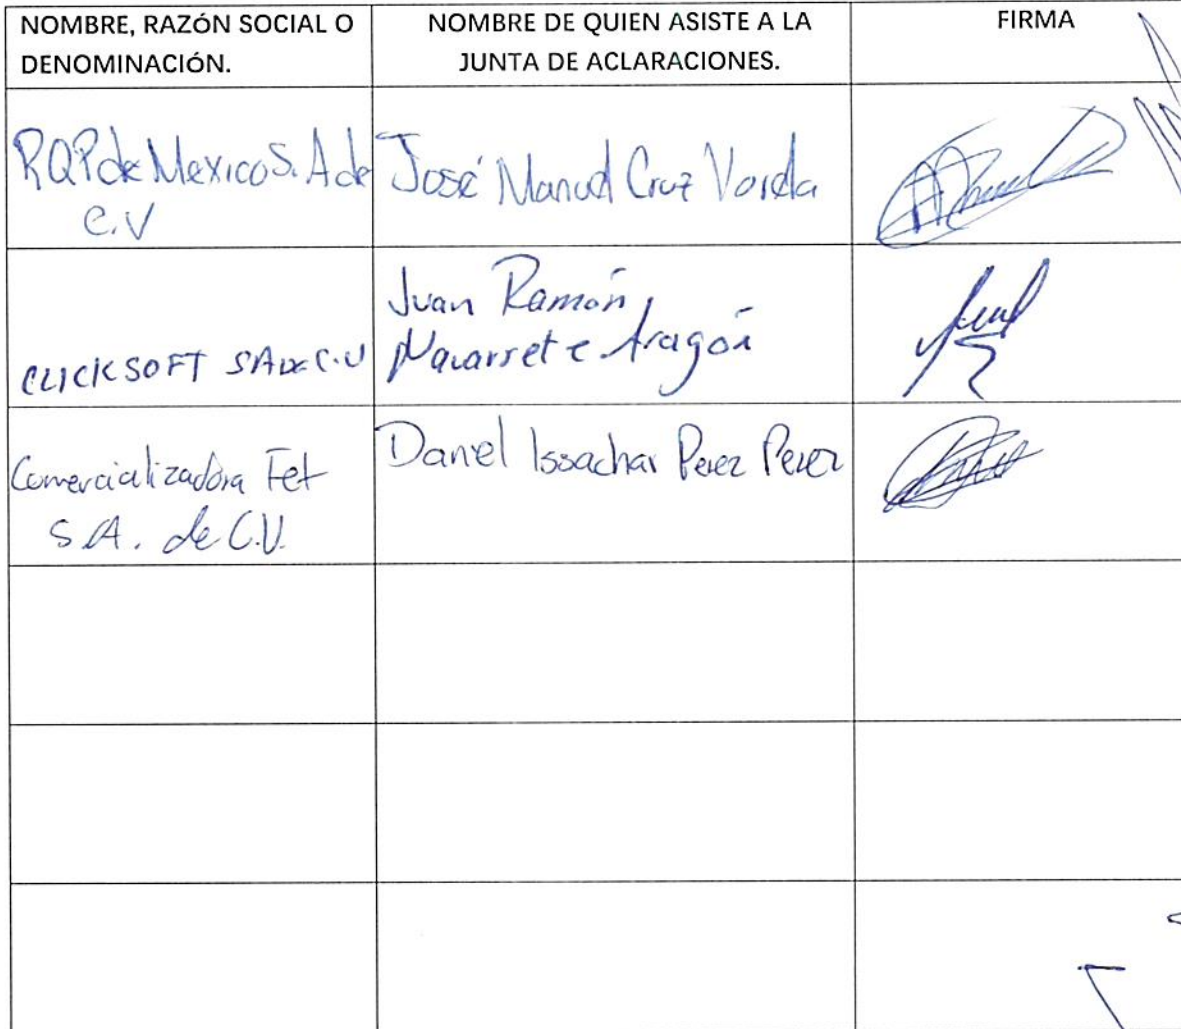 NOMBRE, RAZÓN SOCIAL O
DENOMINACIÓN.
NOMBRE DE QUIEN ASISTE A LA
JUNTA DE ACLARACIONES.
FIRMA
RQP de Mexico S. A de
C.V
José Manuel Cruz Varela
CLICKSOFT SA DE C.V
Juan Ramón
Navarrete Aragón
Comercializadora Fet
S.A. de C.V.
Daniel Issachar Perez Perez